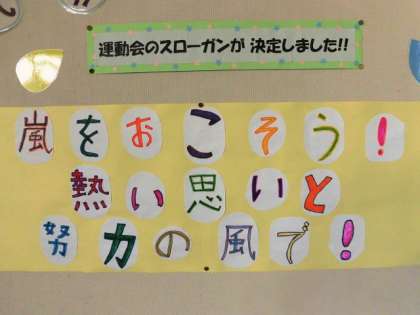 運動会のスローガンが 決定しました!!
嵐をおこそう!
熱い思いと
努力の風で!